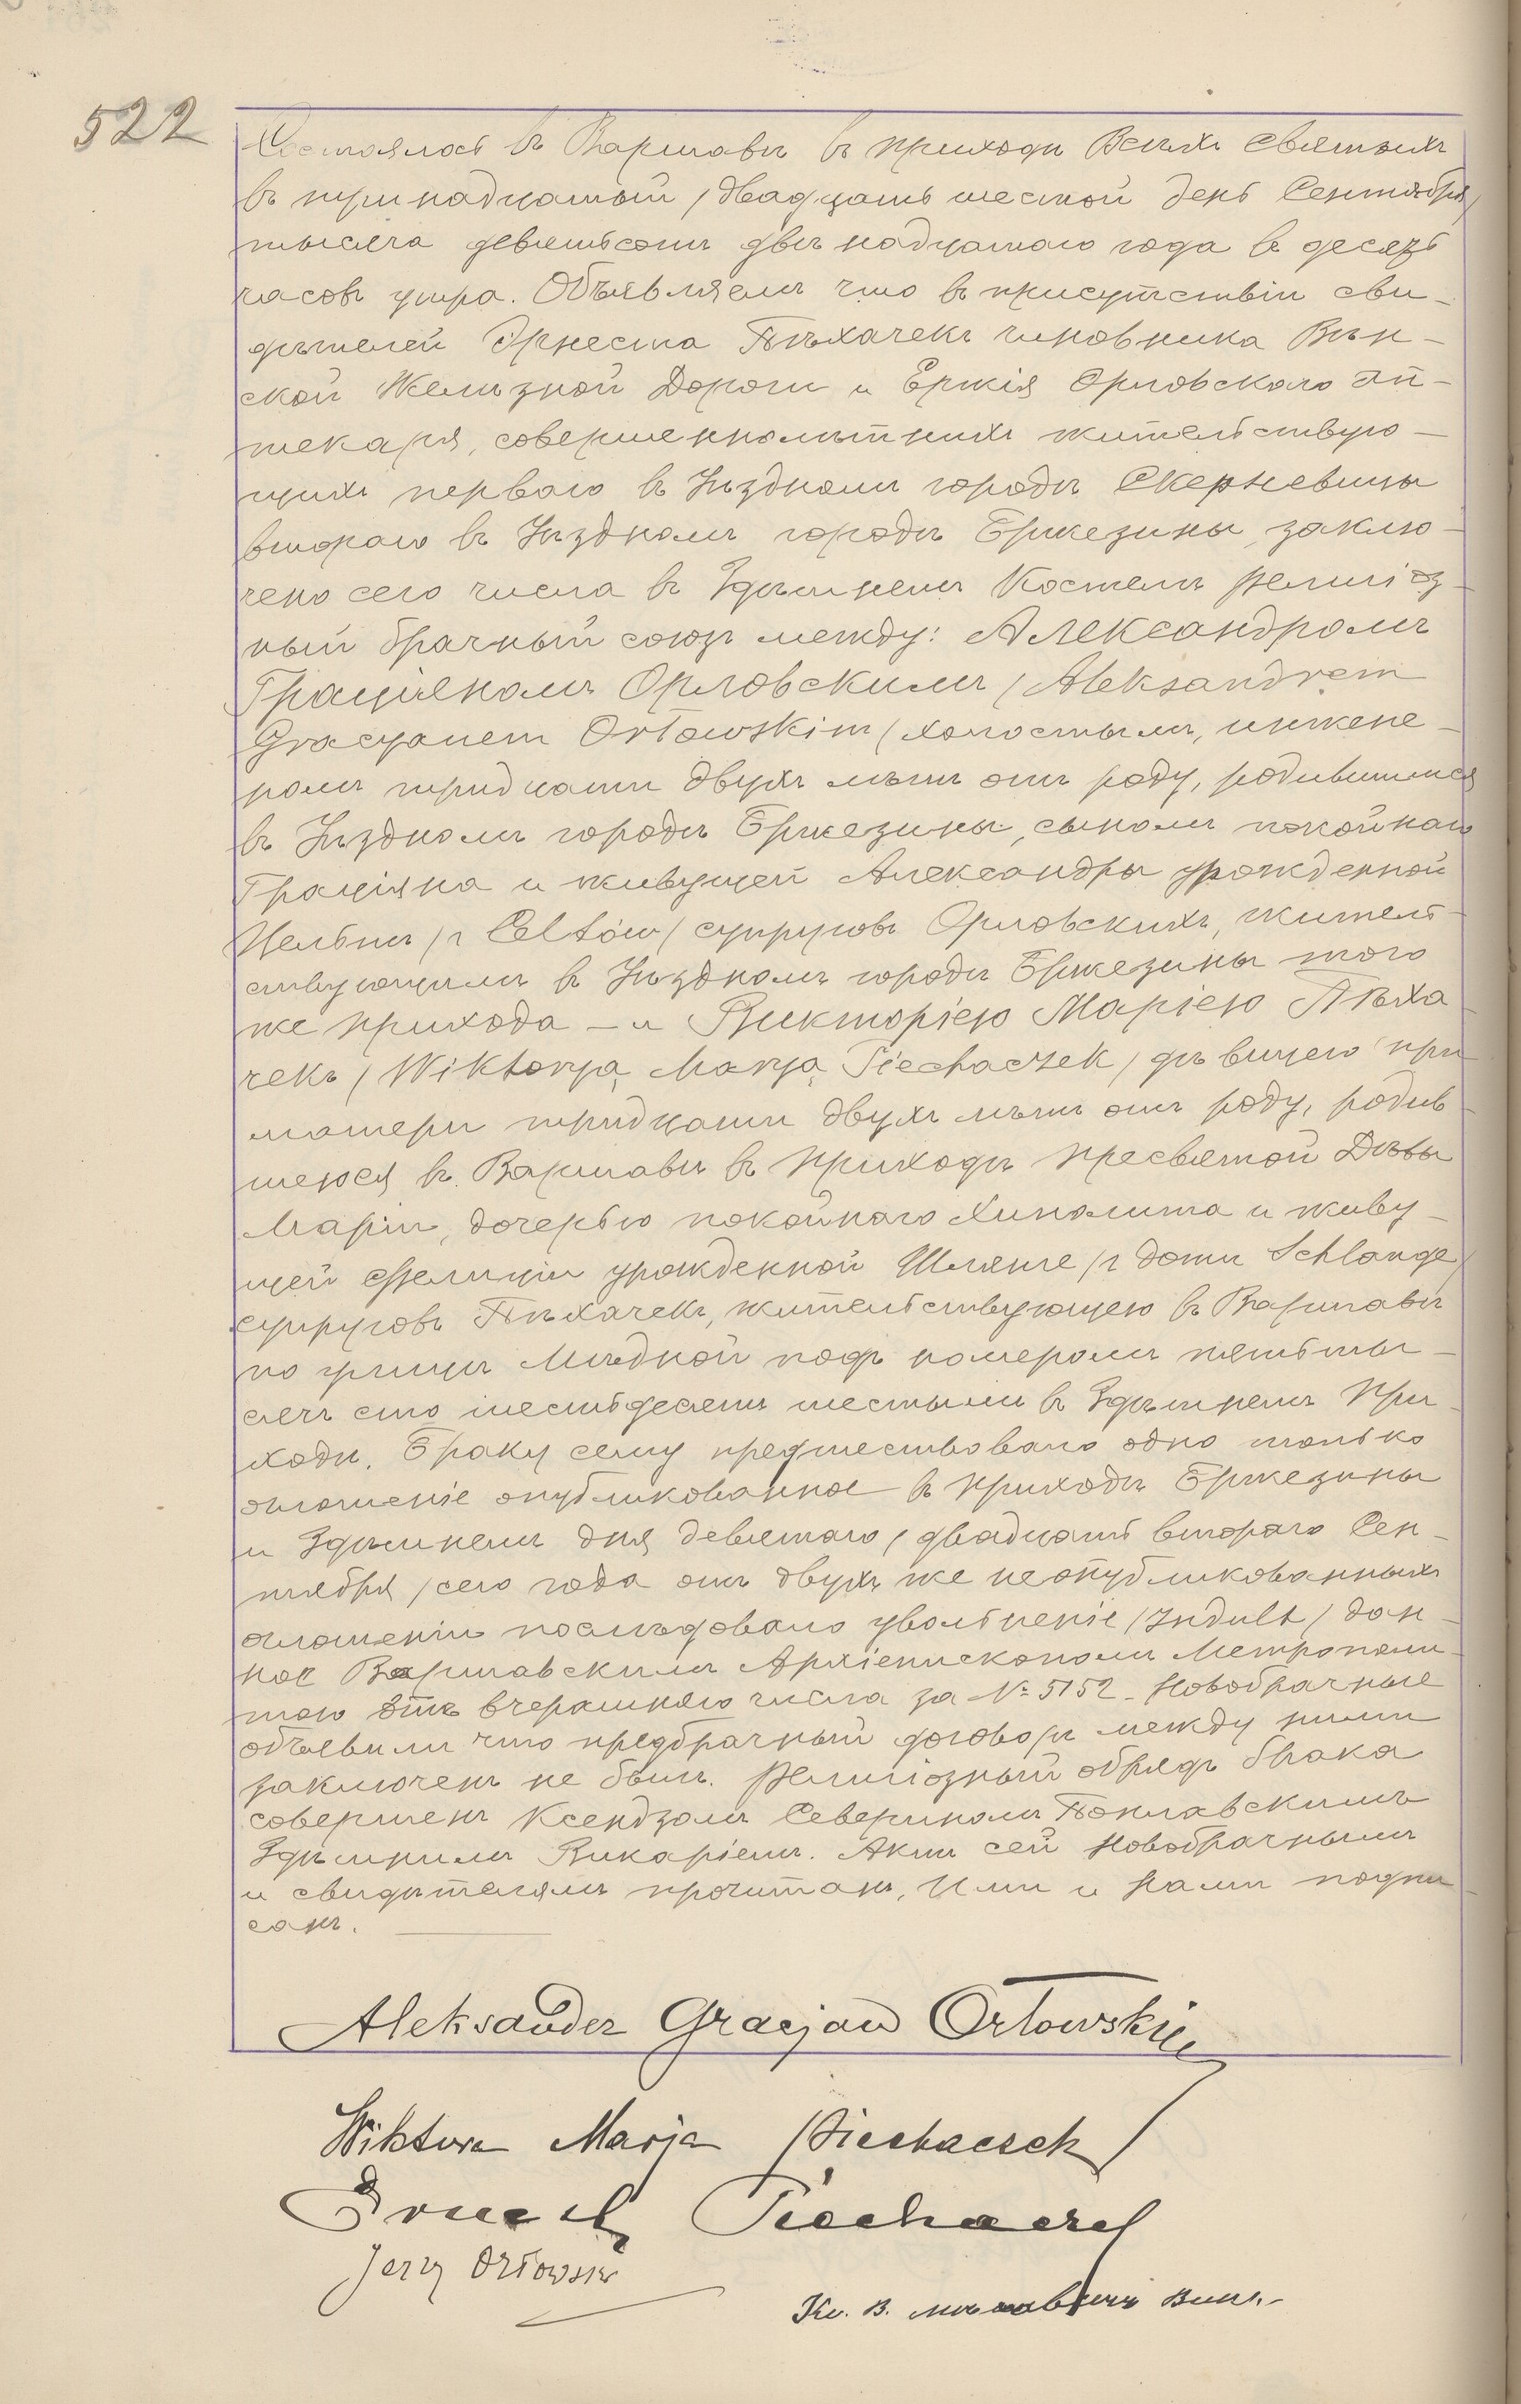 522
Состоялось въ Варшавѣ въ приходѣ Всѣхъ Святыхъ
въ тринадцатый /двадцать шестой день Сентября/
тысяча девятьсотъ двѣнадцатаго года въ десять
часовъ утра. Объявляемъ что въ присутствіи сви-
дѣтелей Эрнеста Пѣхачекъ чиновника Вѣн-
ской Желѣзной Дороги и Ержія Орловскаго Ап-
текаря, совершеннолѣтнихъ жительствую-
щихъ перваго въ Уѣздномъ городѣ Скерневицы
втораго въ Уѣздномъ городѣ Бржезины, заклю-
чено сего числа въ Здѣшнемъ Костелѣ религіоз-
ный брачный союзъ между: Александромъ
Граціяномъ Орловскимъ /Aleksandrem
Gracyanem Orłowskim/ холостымъ, инжене-
ромъ тридцати двухъ лѣтъ отъ роду, родившимся
въ Уѣздномъ городѣ Бржезины, сыномъ покойнаго
Граціяна и живущей Александры урожденной
Цельтъ /z Celtów/ супруговъ Орловскихъ, житель-
ствующимъ въ Уѣздномъ городѣ Бржезины того
же прихода – и Викторіею Маріею Пѣха-
чекъ /Wiktoryą Maryą Piechaczek/ дѣвицею при
матери тридцати двухъ лѣтъ отъ роду, родив-
шеюся въ Варшавѣ въ приходѣ Пресвятой Дѣвы
Маріи, дочерью покойнаго Хиполита и живу-
щей Фелиціи урожденной Шлянге /z domu Schlange/
супруговъ Пѣхачекъ, жительствующею въ Варшавѣ
по улицѣ Мѣдной подъ номеромъ пятьты-
сячъ сто шестьдесятъ шестымъ въ Здѣшнемъ При-
ходѣ. Браку сему предшествовало одно только
оглошеніе опубликованное въ приходѣ Бржезины
и Здѣшнемъ дня девятаго /двадцать втораго Сен-
тября/ сего года отъ двухъ же неопубликованныхъ
оглошеніи послѣдовало увольненіе /Indult/ дан-
ное Варшавскимъ Архіепископомъ Метрополи-
тою отъ вчерашняго числа за № 5152 – Новобрачные
объявили что предбрачный договоръ между ними
заключенъ не былъ. Религіозный обрядъ брака
совершенъ Ксендзомъ Севериномъ Поплавскимъ
Здѣшнимъ Викаріемъ. Актъ сей Новобрачнымъ
и свидѣтелямъ прочитанъ, Ими и Нами подпи-
санъ.
Aleksander Gracjan Orłowski
Wiktorja Marja Piechaczek
Ernest Piechaczek
Jerzy Orłowski
Кс. В.